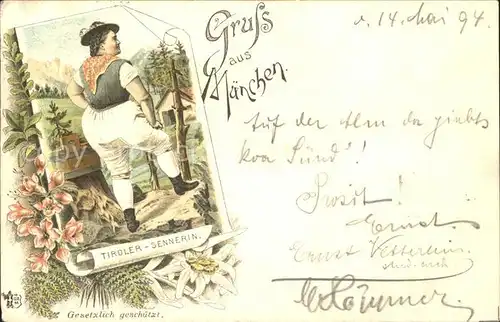 Gruss
aus
München.
d. 14. Mai 94.
Auf der Alm da giebts
koa Sünd"!
Prosit!
Ernst.
Ernst
TIROLER-SENNERIN.
Gesetzlich geschützt.